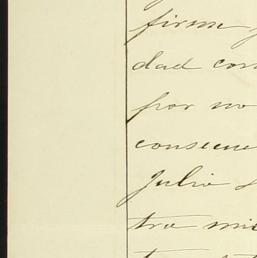 firme
dad con
por no
consecue
Julio
tra mi